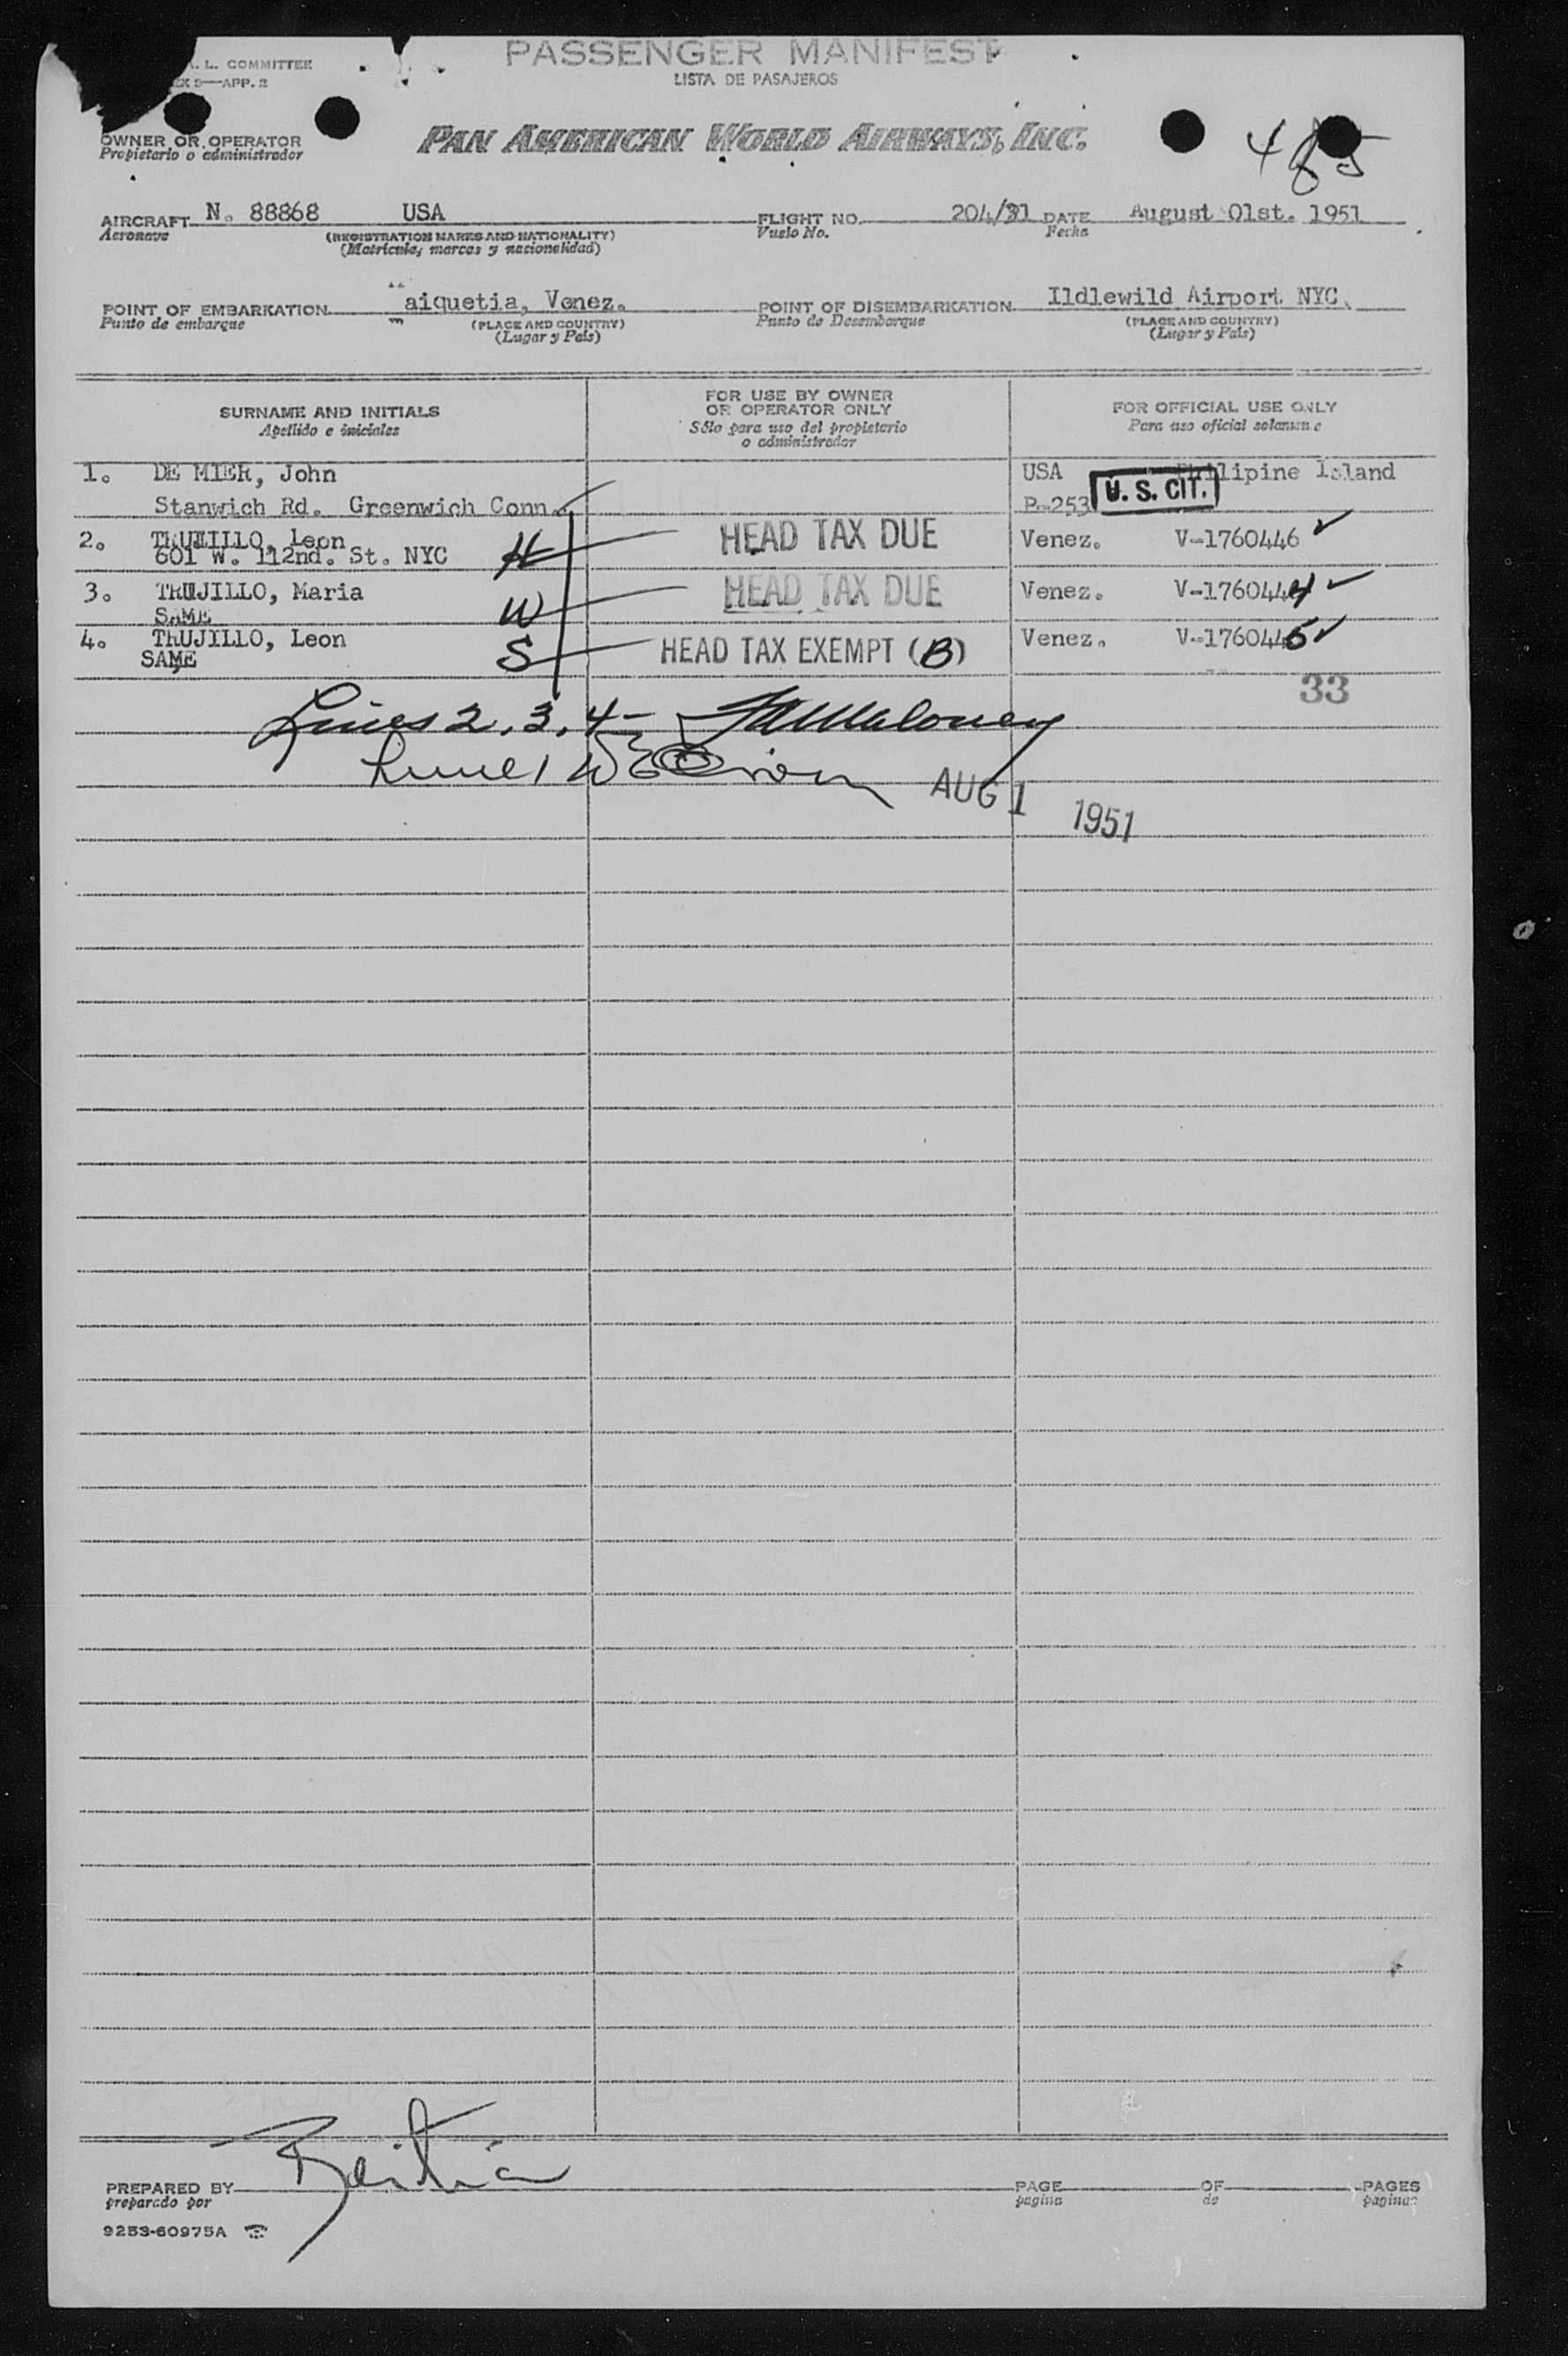 L. COMMITTEE
PASSENGER MANIFEST
9—APP. 2
LISTA DE PASAJEROS
OWNER OR OPERATOR
Propietario o administrador
PAN AMERICAN WORLD AIRWAYS, INC.
AIRCRAFT N. 88868 USA FLIGHT NO. 204/31 DATE August 01st. 1951
Aeronave (REGISTRATION MARKS AND NATIONALITY) Vuelo No. Fecha
(Matricula, marcas y nacionalidad)
POINT OF EMBARKATION aiquetia, Venez. POINT OF DISEMBARKATION Ildlewild Airport NYC.
Punto de embarque (PLACE AND COUNTRY) Punto de Desembarque (PLACE AND COUNTRY)
(Lugar y País) (Lugar y País)
SURNAME AND INITIALS
Apellido e iniciales
FOR USE BY OWNER
OR OPERATOR ONLY
Sólo para uso del propietario
o administrador
FOR OFFICIAL USE ONLY
Para uso oficial
1. DE MIER, John USA Philipine Island
Stanwich Rd. Greenwich Conn. P-253 U. S. CIT.
2. TRUJILLO, Leon HEAD TAX DUE Venez. V-1760446
601 W. 112nd. St. NYC H
3. TRUJILLO, Maria HEAD TAX DUE Venez. V-1760444
SAME W
4. TRUJILLO, Leon HEAD TAX EXEMPT (B) Venez. V-1760445
SAME S
33
Lines 2, 3, 4- Maloney
Line 1
AUG 1 1951
PREPARED BY PAGE OF PAGES
preparado por pagina de paginas
9253-60975A